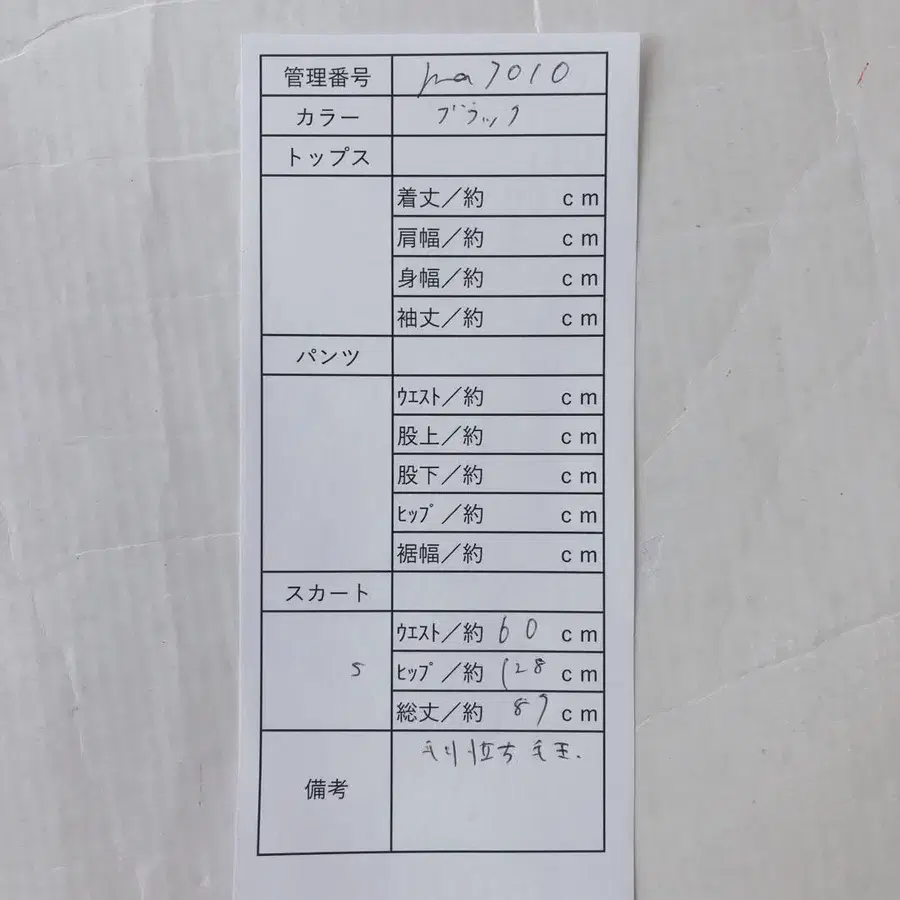 管理番号 ma7010
カラー ブラック
トップス
着丈／約 cm
肩幅／約 cm
身幅／約 cm
袖丈／約 cm
パンツ
ｳｴｽﾄ／約 cm
股上／約 cm
股下／約 cm
ﾋｯﾌﾟ／約 cm
裾幅／約 cm
スカート
ｳｴｽﾄ／約 60 cm
5 ﾋｯﾌﾟ／約 128 cm
総丈／約 89 cm
備考 毛羽立ち 毛玉.